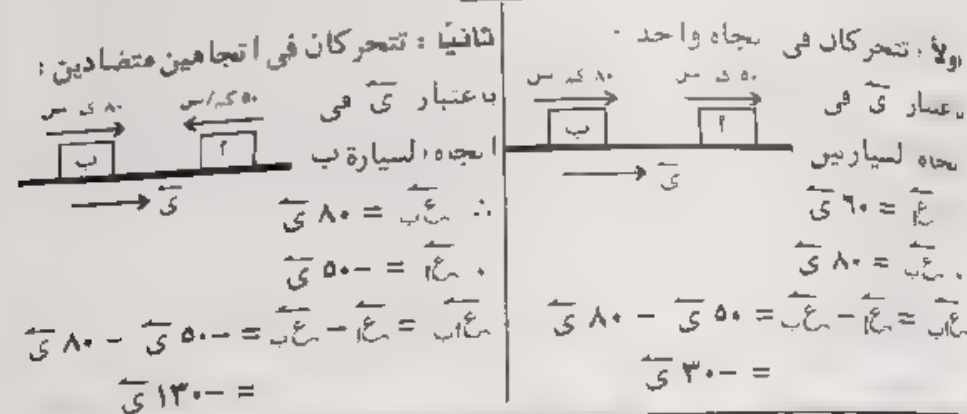 أولاً : تتحركان فى تجاه واحد .
٥٠ ك س
٨٠ كم س
بعتبار ىَ فى
أ
ب
تجاه لسيارتين
ى
ع أ = ٦٠ ى
، ع ب = ٨٠ ى
ع أب = ع أ − ع ب = ٥٠ ى − ٨٠ ى
= −٣٠ ى
ثانيًا : تتحركان فى اتجاهين متضادين :
٥٠ كم/س
٨٠ ك س
باعتبار ى فى
أ
ب
اتجاه السيارة ب
ى
∴ ع ب = ٨٠ ى
، ع أ = −٥٠ ى
ع أب = ع أ − ع ب = −٥٠ ى − ٨٠ ى
= −١٣٠ ى